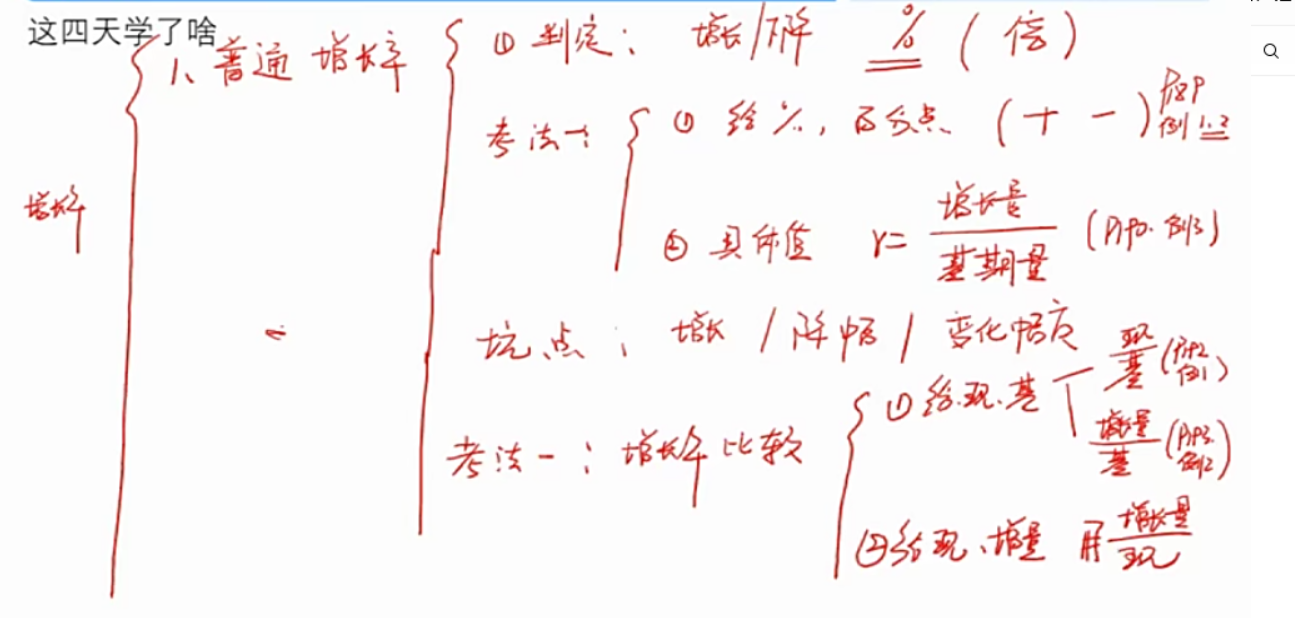 这四天学了啥
增长率
1、普通增长率
① 判定： 增长/下降 % （倍）
考法一：
① 给%，百分点 （+ -） 例1.2
② 具体值 r= 增长量/基期量 （P190. 例3）
坑点： 增长/降幅/变化幅度
考法一：增长率比较
① 给.现.基
现/基 例1
增长量/基 例2
②给现、增量 用 增长量/现